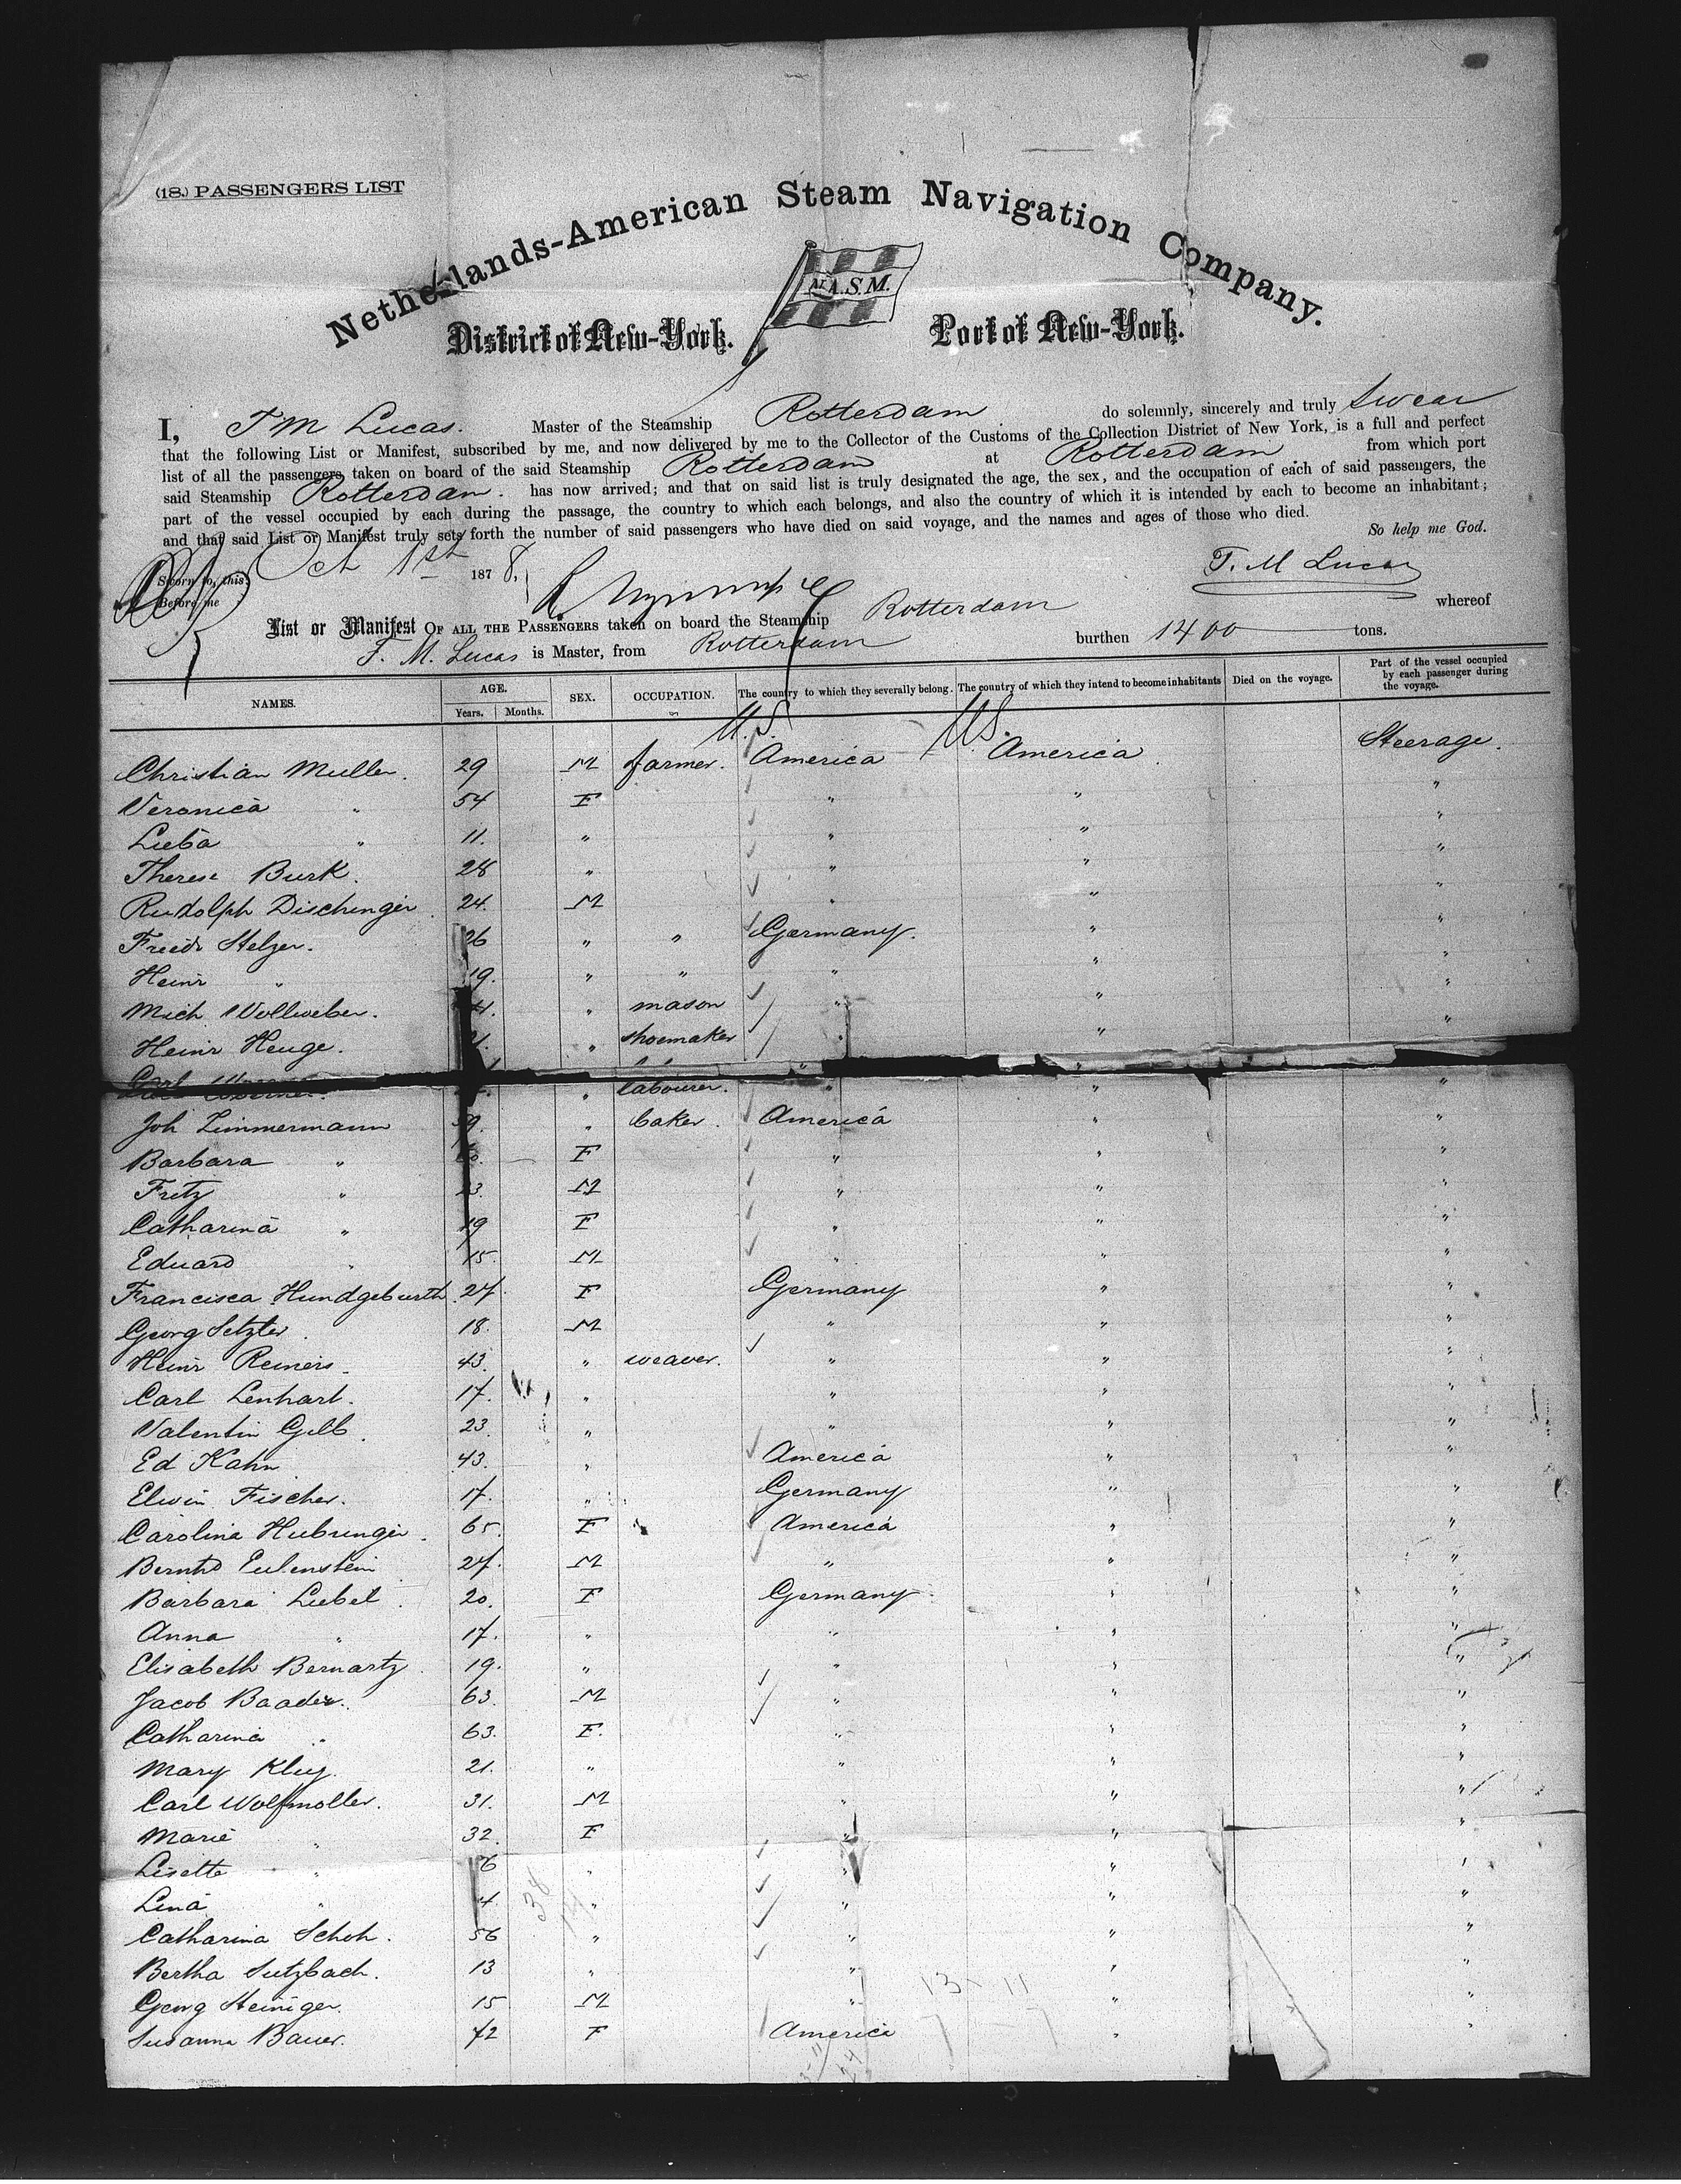 (18.) PASSENGERS LIST
Netherlands-American Steam Navigation Company.
N.A.S.M.
District of New-York. Port of New-York.
I, T M Lucas. Master of the Steamship Rotterdam do solemnly, sincerely and truly swear
that the following List or Manifest, subscribed by me, and now delivered by me to the Collector of the Customs of the Collection District of New York, is a full and perfect
list of all the passengers taken on board of the said Steamship Rotterdam at Rotterdam. from which port
said Steamship Rotterdam. has now arrived; and that on said list is truly designated the age, the sex, and the occupation of each of said passengers, the
part of the vessel occupied by each during the passage, the country to which each belongs, and also the country of which it is intended by each to become an inhabitant;
and that said List or Manifest truly sets forth the number of said passengers who have died on said voyage, and the names and ages of those who died.
So help me God.
Sworn to, this Oct 1st 1878. T. M Lucas
Before me
List or Manifest OF ALL THE PASSENGERS taken on board the Steamship Rotterdam whereof
T. M. Lucas is Master, from Rotterdam burthen 1400 tons.
NAMES. AGE. Years. Months. SEX. OCCUPATION. The country to which they severally belong. The country of which they intend to become inhabitants Died on the voyage. Part of the vessel occupied by each passenger during the voyage.
U.S. U.S.
Christian Muller. 29 M farmer. America America Steerage.
Veronica " 54 F " " "
Lieba " 11. " " " "
Therese Burk. 28 " " " "
Rudolph Dischinger. 24. M " " "
Friedr Stelzer. 26 " " Germany. " "
Heinr " 19. " " " " "
Mich Wollweber. " mason " " "
Heinr Heuge. " shoemaker " " "
Carl " labourer. " " "
Joh Zimmermann 59. " baker. America " "
Barbara " F " " "
Fritz " 23. M " " "
Catharina " 19 F " " "
Eduard " 15. M " " "
Francisca Hundgeburth. 27. F Germany " "
Georg Setzter. 18. M " " "
Heinr Reiners. 43. " weaver. " " "
Carl Lenhart. 17. " " " "
Valentin Gilb. 23. " " " "
Ed Kahn 43. " America " "
Elwin Fischer. 17. " Germany " "
Carolina Hubringer. 65. F America " "
Bernhd Eulenstein 27. M " " "
Barbara Liebel. 20. F Germany " "
Anna " 17. " " " "
Elisabeth Bernartz. 19. " " " "
Jacob Baader. 63. M " " "
Catharina " 63. F. " " "
Mary Klug. 21. " " " "
Carl Wolfmoller. 31. M " " "
Marie " 32. F " " "
Lisette " 6 " " " "
Lina " 4. " " " "
Catharina Schoh. 56 " " " "
Bertha Sutzbach. 13 " " " "
Georg Steiniger. 15 M " " "
Susanna Bauer. 72 F America " "